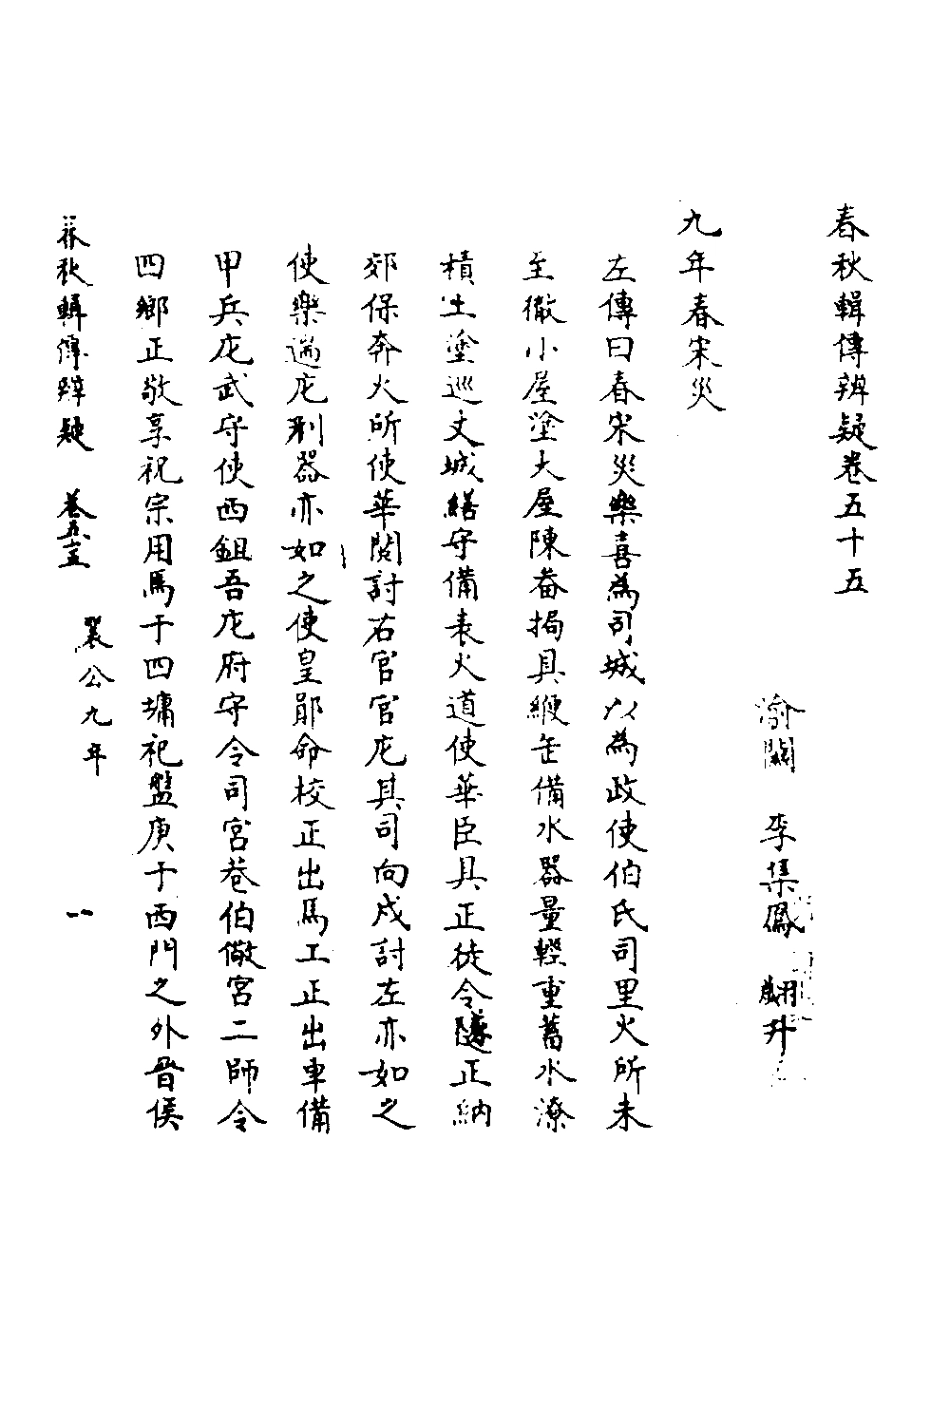 春秋輯傳辨疑卷五十五
渝關 李集鳳 翽升
九年春宋災
左傳曰春宋災樂喜為司城以為政使伯氏司里火所未
至徹小屋塗大屋陳畚挶具綆缶備水器量輕重蓄水潦
積土塗巡丈城繕守備表火道使華臣具正徒令隧正納
郊保奔火所使華閱討右官官庀其司向戌討左亦如之
使樂遄庀刑器亦如之使皇鄖命校正出馬工正出車備
甲兵庀武守使西鉏吾庀府守令司宮巷伯儆宮二師令
四鄉正敬享祝宗用馬于四墉祀盤庚于西門之外晉侯
春秋輯傳辨疑 卷五十五 襄公九年 一